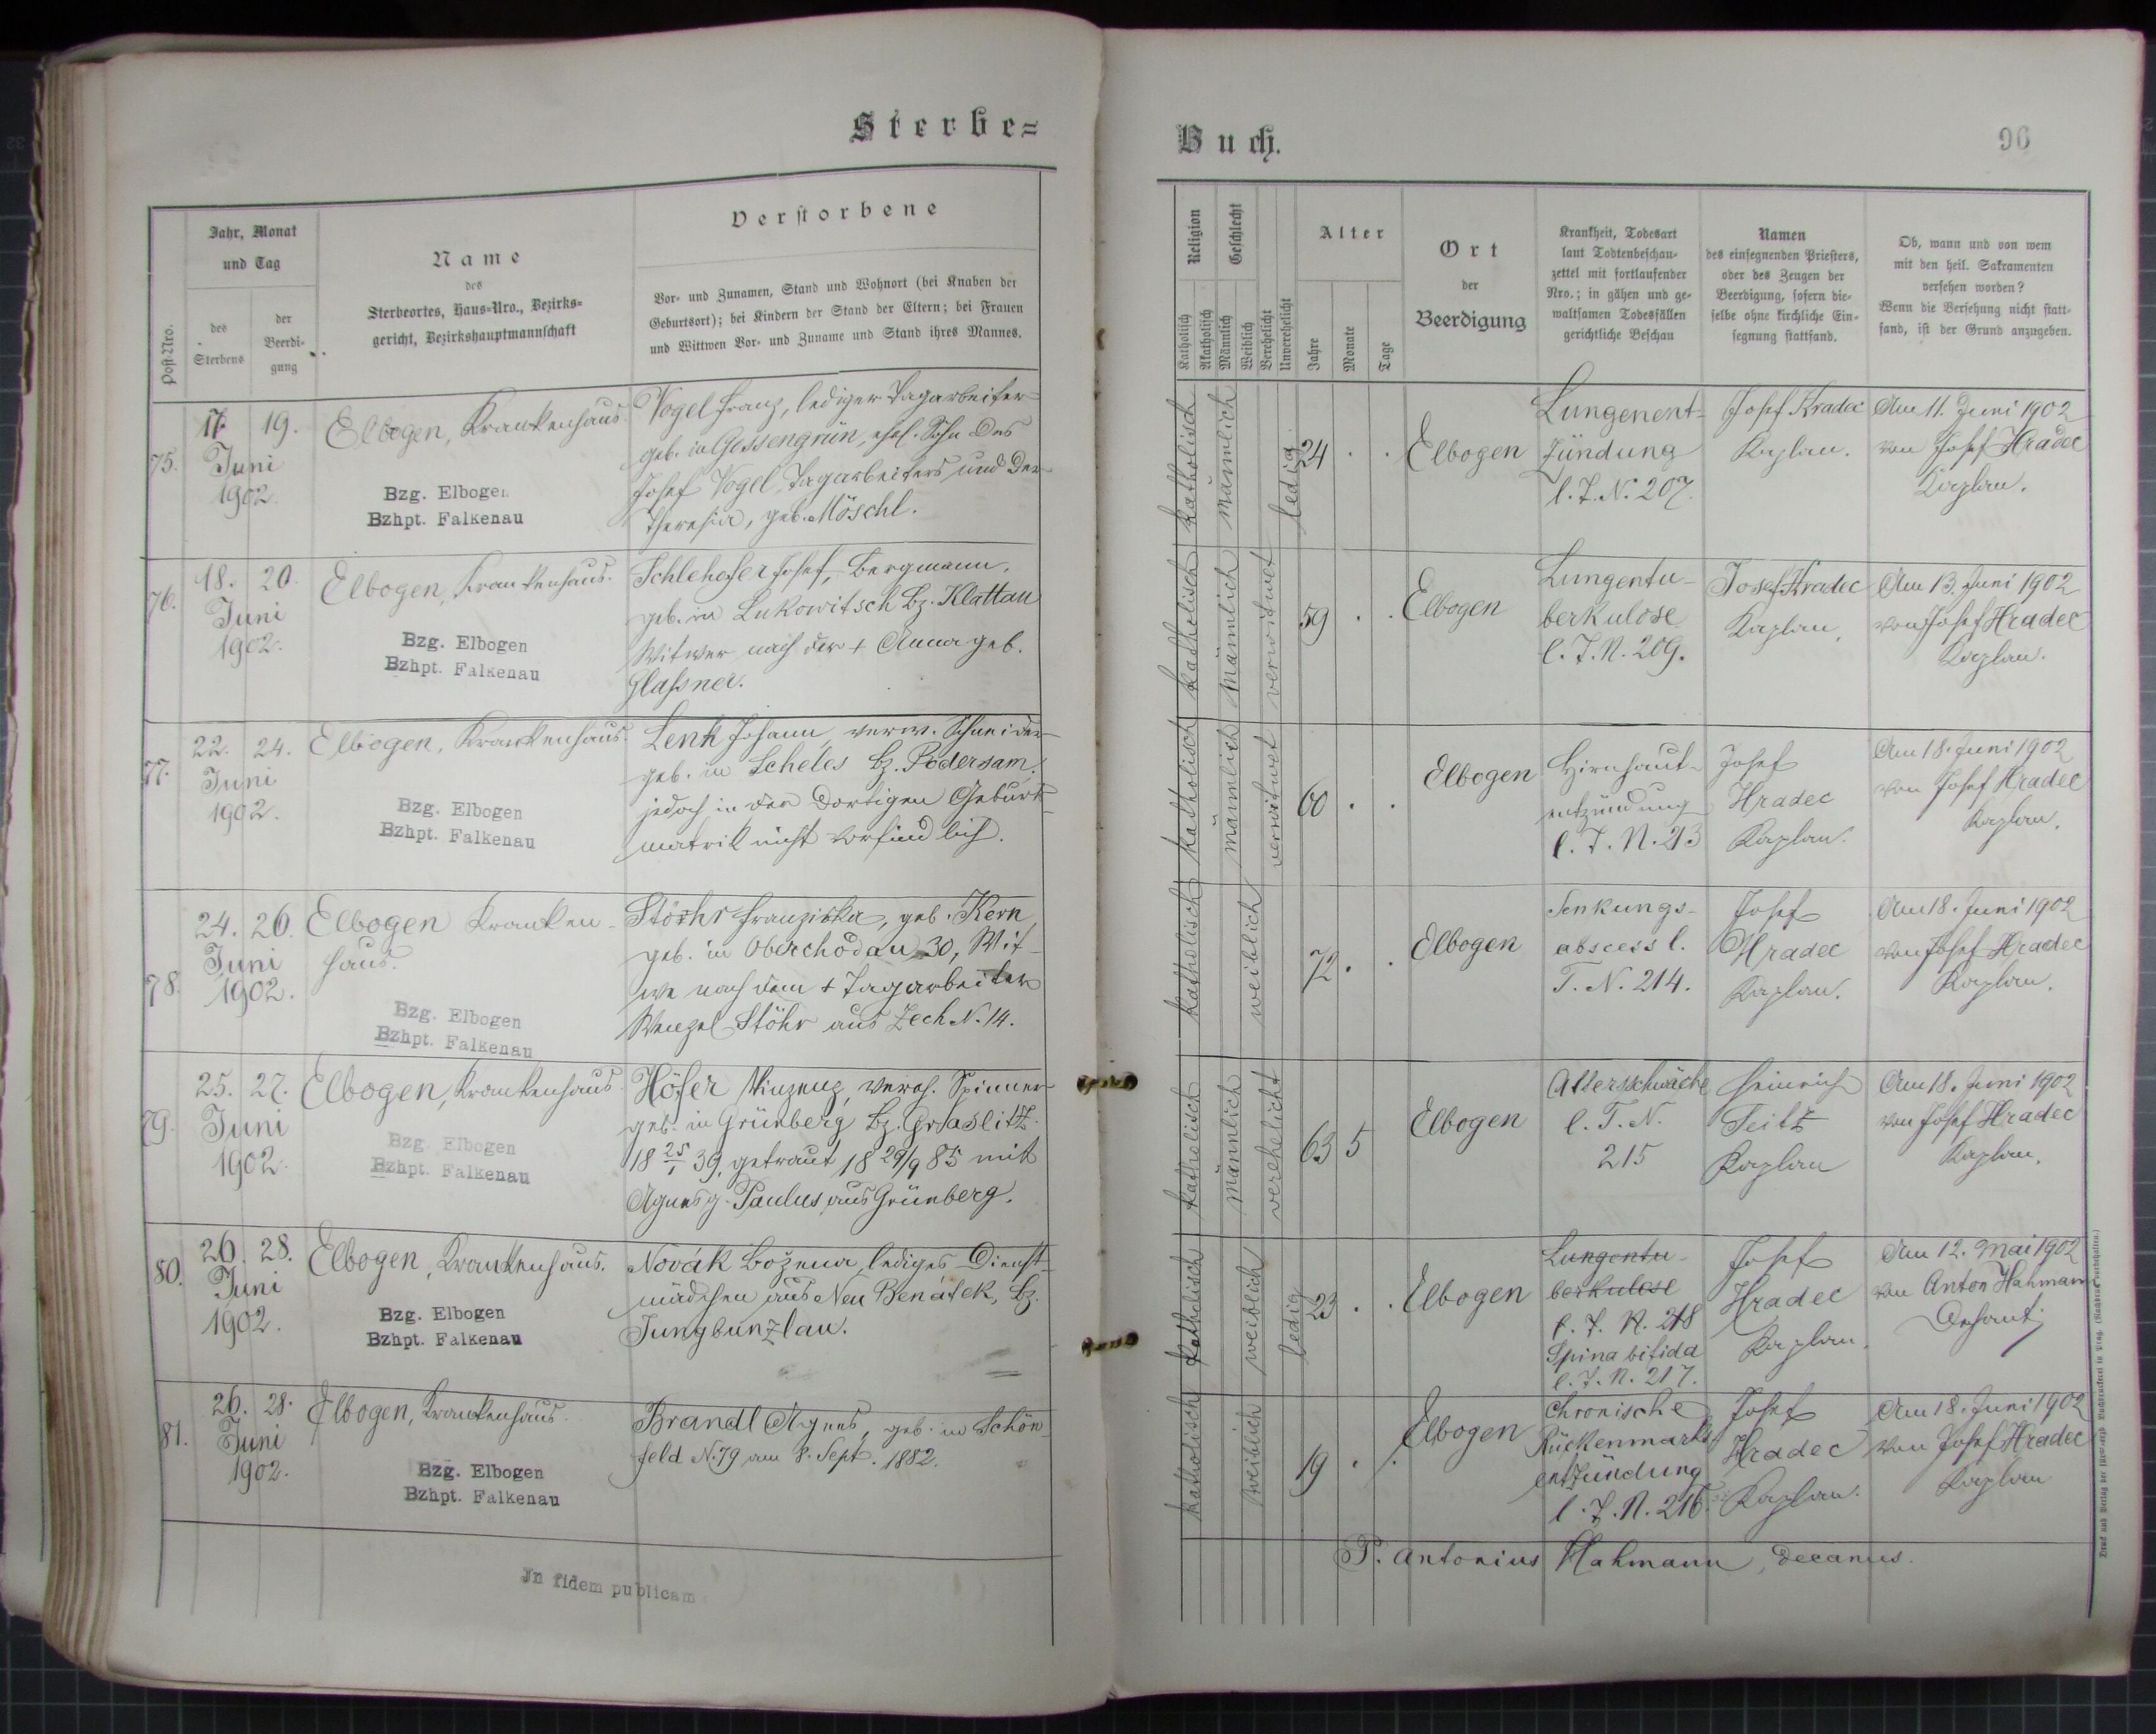 Sterbe=
Jahr, Monat
und Tag
Post-Nro.
des
Sterbens
der
Beerdi-
gung
Name
des
Sterbeortes, Haus-Nro., Bezirks=
gericht, Bezirkshauptmannschaft
Verstorbene
Vor- und Zunamen, Stand und Wohnort (bei Knaben der
Geburtsort); bei Kindern der Stand der Eltern; bei Frauen
und Wittwen Vor- und Zuname und Stand ihres Mannes.
75.
17. 19.
Juni
1902.
Elbogen, Krankenhaus
Bzg. Elbogen
Bzhpt. Falkenau
Vogel Franz, lediger Tagarbeiter
geb. in Gossengrün, ehel. Sohn des
Josef Vogel, Tagarbeiters und der
Theresia, geb. Möschl.
76.
18. 20.
Juni
1902.
Elbogen, Krankenhaus.
Bzg. Elbogen
Bzhpt. Falkenau
Schlehofer Josef, Bergmann,
geb. in Lukowitsch Bz. Klattau
Witwer nach der + Anna geb.
Glassner.
77.
22. 24.
Juni
1902.
Elbogen, Krankenhaus.
Bzg. Elbogen
Bzhpt. Falkenau
Lenk Johann, verw. Schneider
geb. in Scheles Bz. Podersam,
jedoch in der dortigen Geburts-
matrik nicht vorfindlich.
78.
24. 26.
Juni
1902.
Elbogen Kranken-
haus.
Bzg. Elbogen
Bzhpt. Falkenau
Stöhr Franziska, geb. Kern
geb. in Oberchodau 30, Wit-
we nach dem + Tagarbeiter
Wenzel Stöhr aus Zech N. 14.
79.
25. 27.
Juni
1902.
Elbogen, Krankenhaus.
Bzg. Elbogen
Bzhpt. Falkenau
Höfer Vinzenz, vereh. Spinner
geb. in Grünberg Bz. Graslitz
18 25/1 39, getraut 18 29/9 85 mit
Agnes g. Paulus aus Grünberg.
80.
26. 28.
Juni
1902.
Elbogen, Krankenhaus.
Bzg. Elbogen
Bzhpt. Falkenau
Novák Božena, lediges Dienst-
mädchen aus Neu Benátek, Bz.
Jungbunzlau.
81.
26. 28.
Juni
1902.
Elbogen, Krankenhaus.
Bzg. Elbogen
Bzhpt. Falkenau
Brandl Agnes, geb. in Schön-
feld N. 79 am 8. Sept. 1882.
In fidem publicam
Buch.
96
Religion
Katholisch
Akatholisch
Geschlecht
Männlich
Weiblich
Verehelicht
Unverehelicht
Alter
Jahre
Monate
Tage
Ort
der
Beerdigung
Krankheit, Todesart
laut Todtenbeschau-
zettel mit fortlaufender
Nro.; in gähen und ge-
waltsamen Todesfällen
gerichtliche Beschau
Namen
des einsegnenden Priesters,
oder des Zeugen der
Beerdigung, sofern die-
selbe ohne kirchliche Ein-
segnung stattfand.
Ob, wann und von wem
mit den heil. Sakramenten
versehen worden?
Wenn die Versehung nicht statt-
fand, ist der Grund anzugeben.
katholisch
männlich
ledig
24 . .
Elbogen
Lungenent-
zündung
l. T. N. 207.
Josef Hradec
Kaplan.
Am 11. Juni 1902
von Josef Hradec
Kaplan.
katholisch
männlich
verwitwet
59 . .
Elbogen
Lungentu-
berkulose
l. T. N. 209.
Josef Hradec
Kaplan.
Am 13. Juni 1902
von Josef Hradec
Kaplan.
katholisch
männlich
verwitwet
60 . .
Elbogen
Hirnhaut-
entzündung
l. T. N. 213
Josef
Hradec
Kaplan.
Am 18. Juni 1902
von Josef Hradec
Kaplan.
katholisch
weiblich
72 . .
Elbogen
Senkungs-
abscess l.
T. N. 214.
Josef
Hradec
Kaplan.
Am 18. Juni 1902
von Josef Hradec
Kaplan.
katholisch
männlich
verehelicht
63 5
Elbogen
Altersschwäche
l. T. N.
215
Heinrich
Seitz
Kaplan
Am 18. Juni 1902
von Josef Hradec
Kaplan.
katholisch
weiblich
ledig
23 . .
Elbogen
Lungentu-
berkulose
l. T. N. 218
Spina bifida
l. T. N. 217.
Josef
Hradec
Kaplan.
Am 12. Mai 1902
von Anton Hahmann
Dechant
katholisch
weiblich
19 . .
Elbogen
Chronische
Rückenmarks-
entzündung
l. T. N. 216
Josef
Hradec
Kaplan.
Am 18. Juni 1902
von Josef Hradec
Kaplan
P. Antonius Hahmann, decanus.